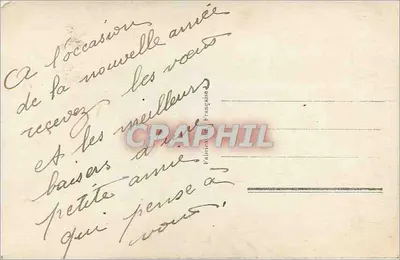 A l'occasion
de la nouvelle année
recevez les vœux
et les meilleurs
baisers d'une
petite amie
qui pense à
vous.
CPAPHIL
Fabrication Française